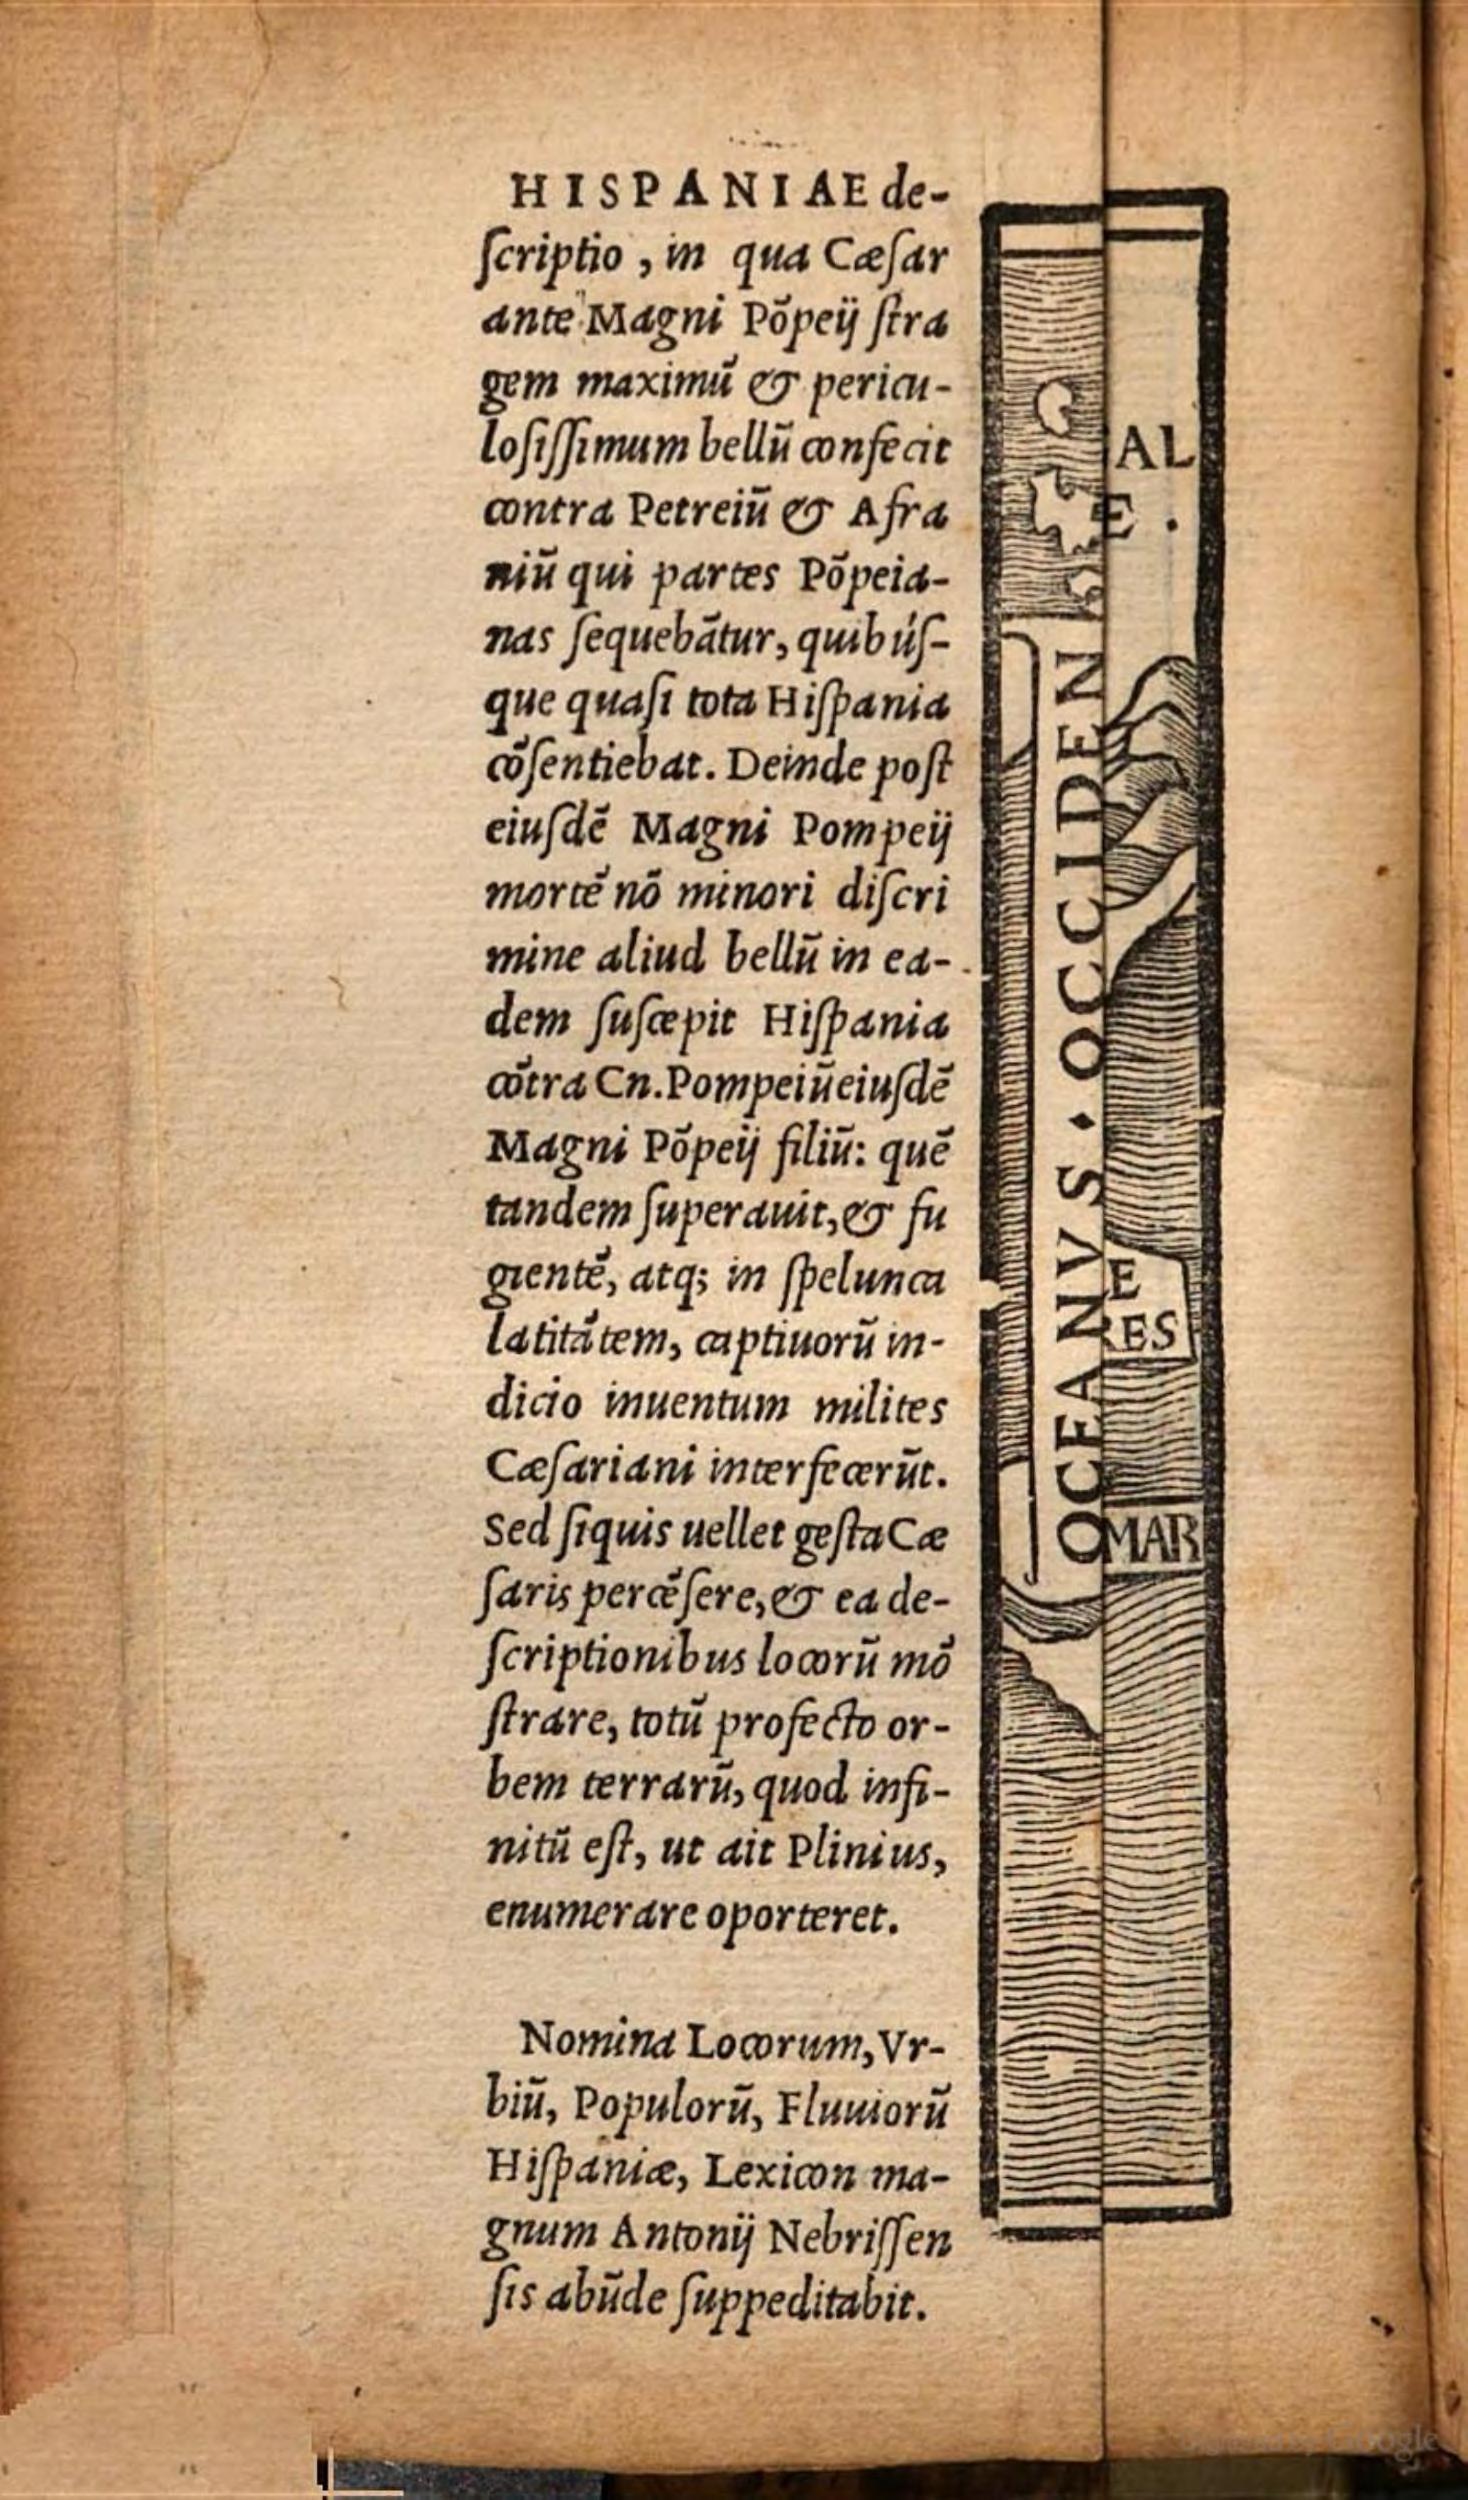 HISPANIAE de-
ſcriptio, in qua Cæſar
ante Magni Põpeij ſtra
gem maximũ & pericu-
loſiſſimum bellũ confecit
contra Petreiũ & Afra
niũ qui partes Põpeia-
nas ſequebãtur, quibúſ-
que quaſi tota Hiſpania
cõſentiebat. Deinde poſt
eiuſdẽ Magni Pompeij
mortẽ nõ minori diſcri
mine aliud bellũ in ea-
dem ſuſcepit Hiſpania
cõtra Cn. Pompeiũ eiuſdẽ
Magni Põpeij filiũ: quẽ
tandem ſuperauit, & fu
gientẽ, atq; in ſpelunca
latitãtem, captiuorũ in-
dicio inuentum milites
Cæſariani interfecerũt.
Sed ſiquis uellet geſta Cæ
ſaris percẽſere, & ea de-
ſcriptionibus locorũ mõ
ſtrare, totũ profecto or-
bem terrarũ, quod infi-
nitũ eſt, ut ait Plinius,
enumerare oporteret.
Nomina Locorum, Vr-
biũ, Populorũ, Fluuiorũ
Hiſpaniæ, Lexicon ma-
gnum Antonij Nebriſſen
ſis abũde ſuppeditabit.
OCEANVS · OCCIDEN
AL
E .
E
RES
MAR